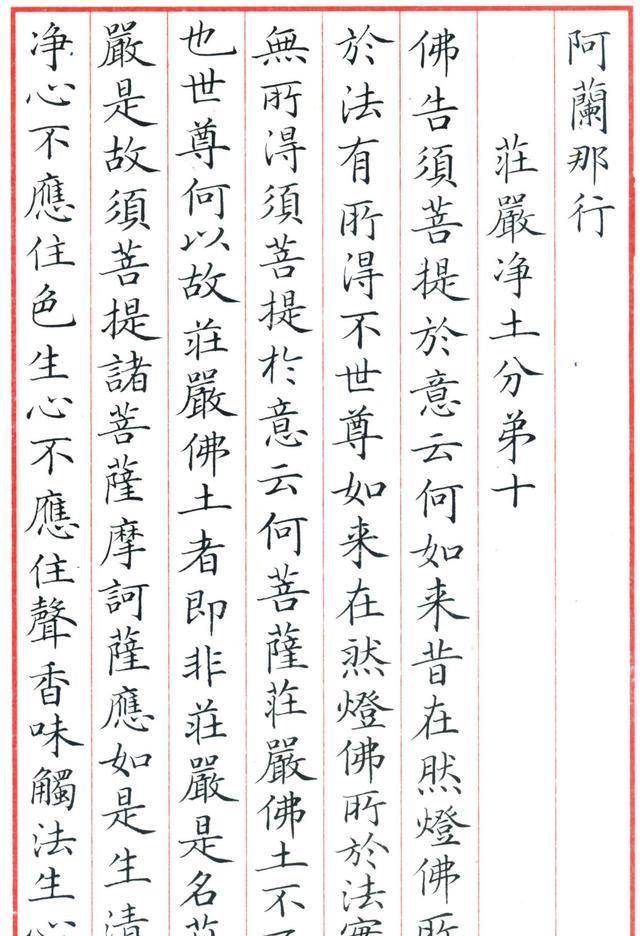 阿蘭那行
莊嚴净土分弟十
佛告須菩提於意云何如来昔在然燈佛所
於法有所得不世尊如来在然燈佛所於法實
無所得須菩提於意云何菩薩莊嚴佛土不
也世尊何以故莊嚴佛土者即非莊嚴是名莊
嚴是故須菩提諸菩薩摩訶薩應如是生清
净心不應住色生心不應住聲香味觸法生心